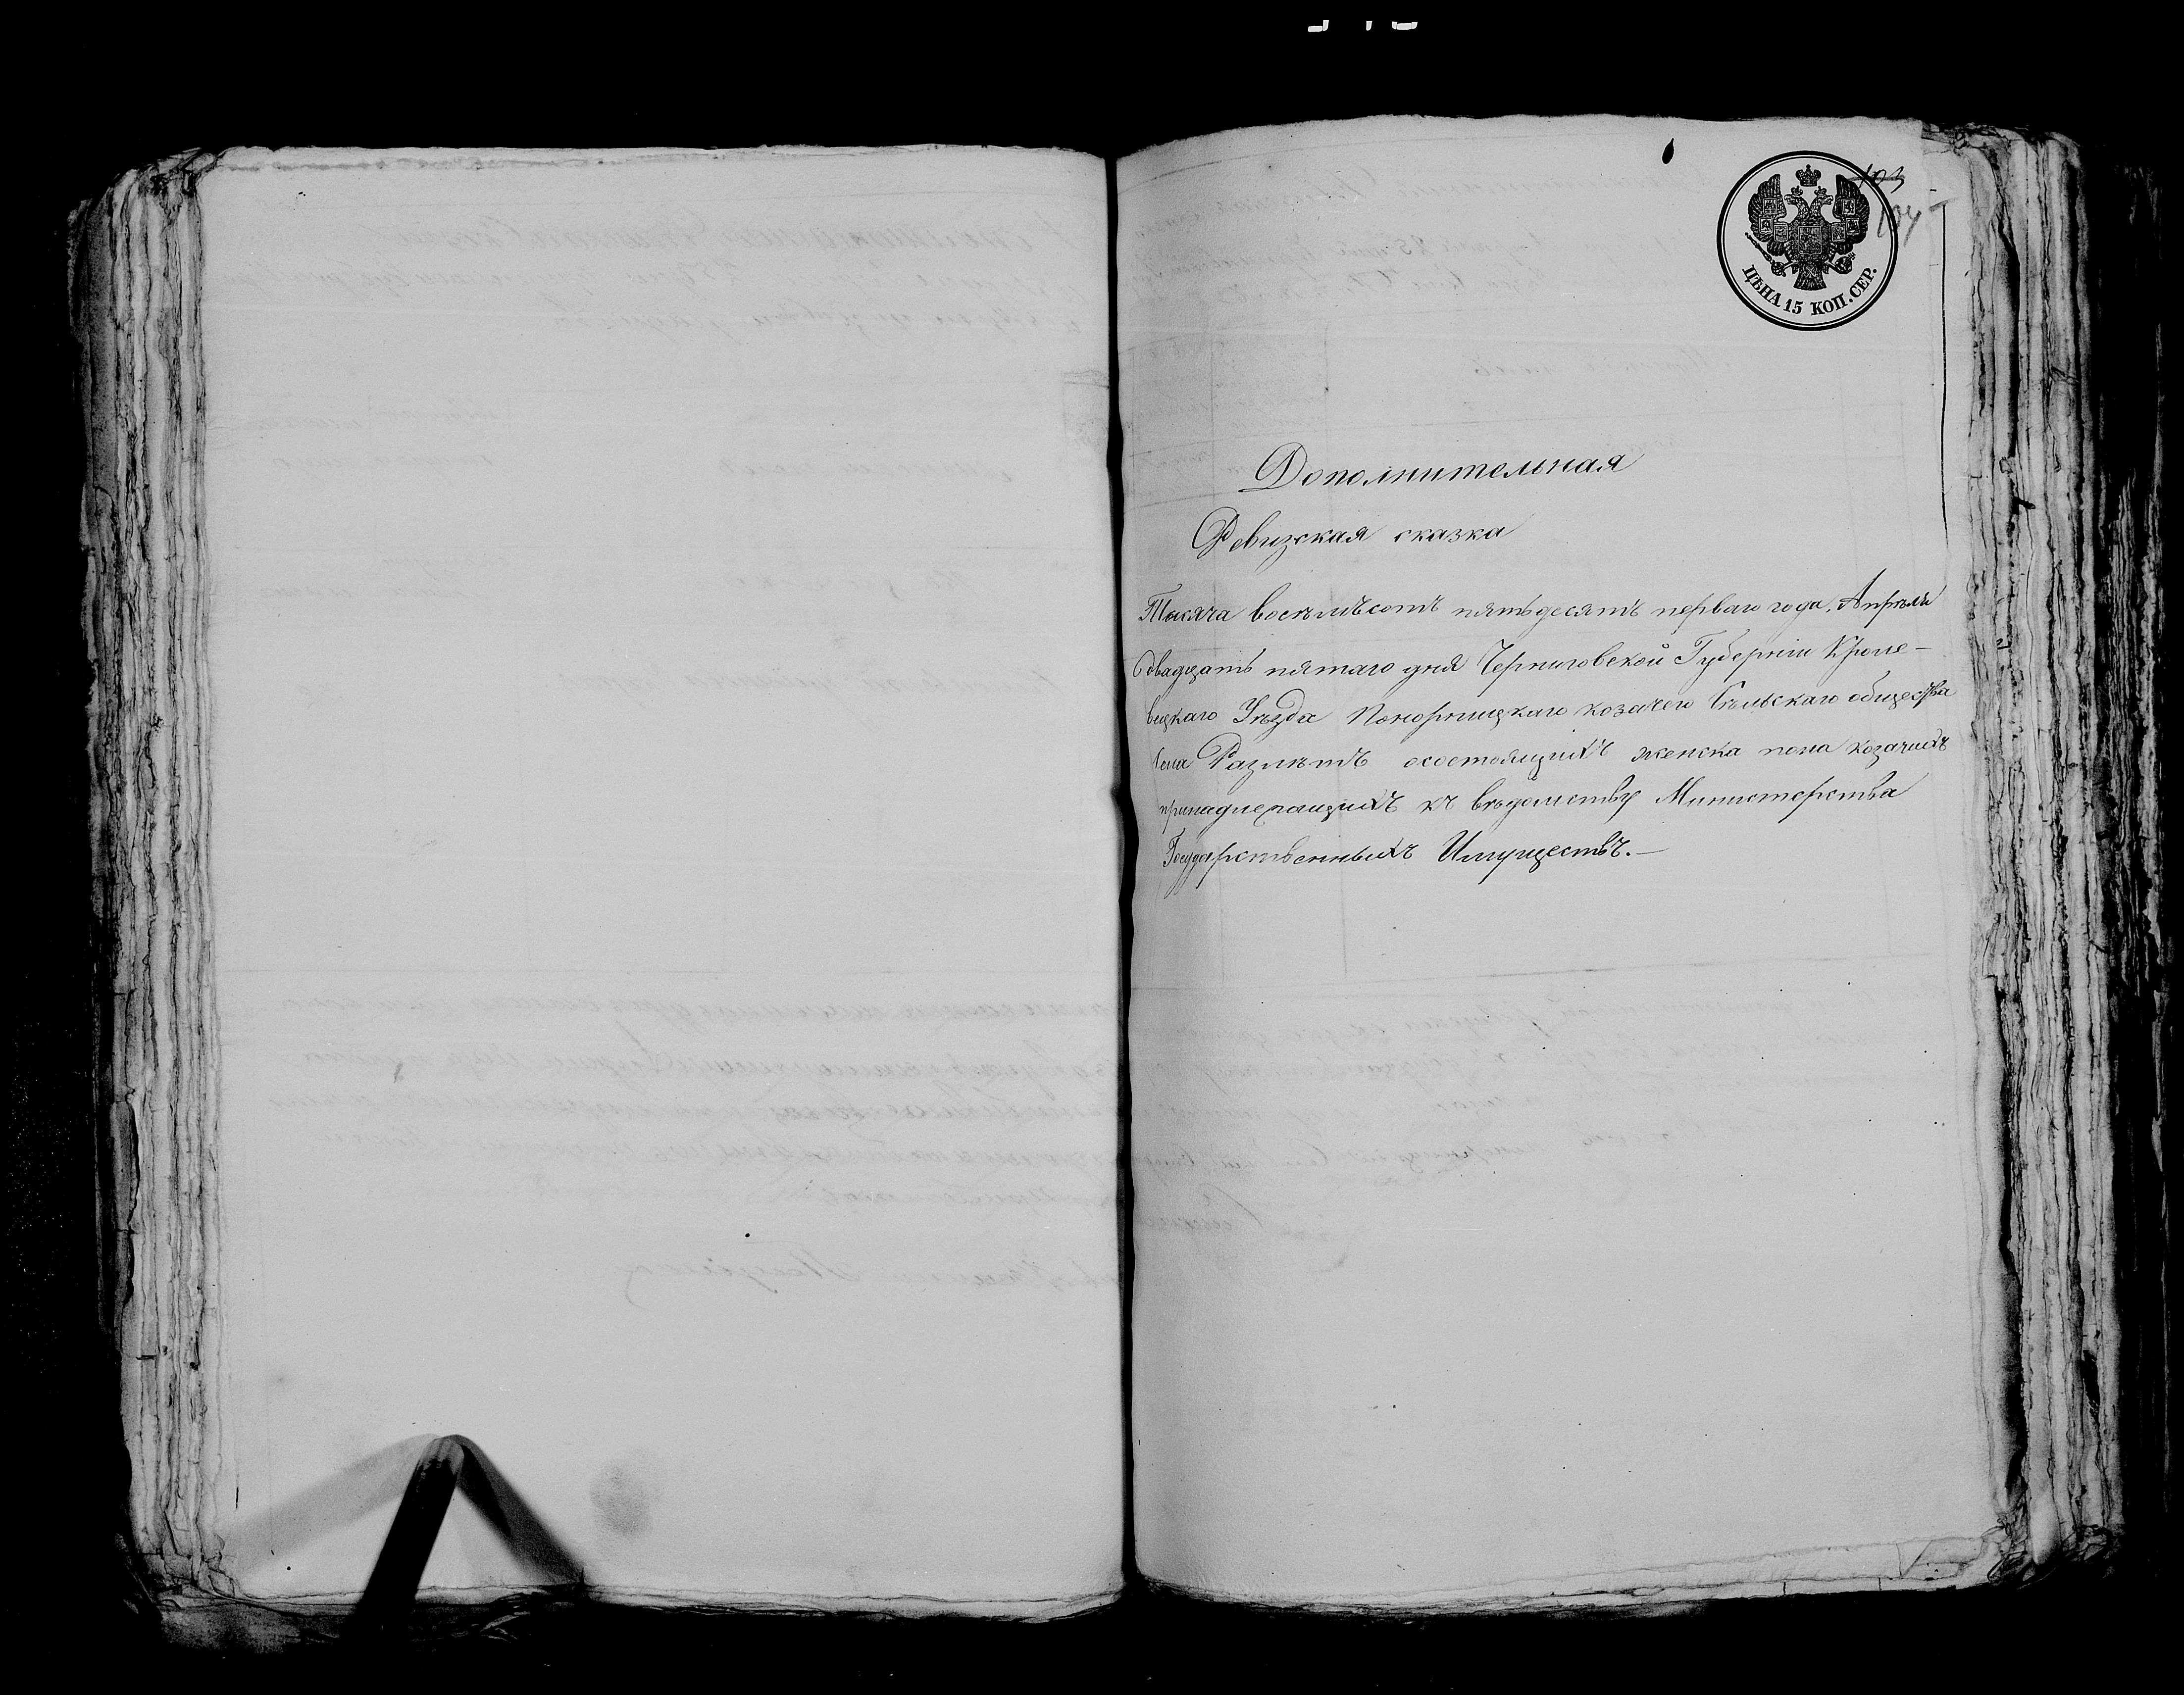 103
104
ЦѢНА 15 КОП. СЕР.
Дополнительная
Ревизская сказка
Тысяча восѣмъсотъ пятьдесятъ перваго года, Апрѣля
двадцать пятаго дня Черниговской Губерніи Кроле-
вецкаго Уѣзда Понорницкаго козачего Сѣльскаго общества
села Разлѣтъ осостоящихъ женска пола козачихъ
принадлежащихъ къ вѣдомству Министерства
Государственныхъ Имуществъ.—